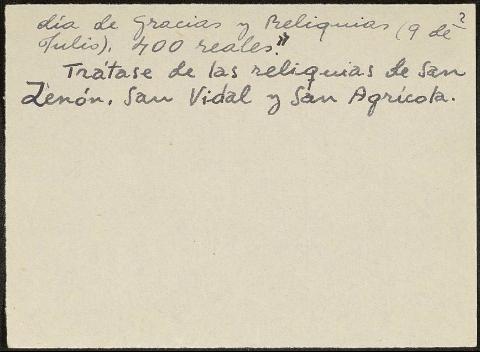 día de Gracias y Reliquias (9 de ?
Julis). 400 reales."
Trátase de las reliquias de San
Zenón, San Vidal y San Agrícola.